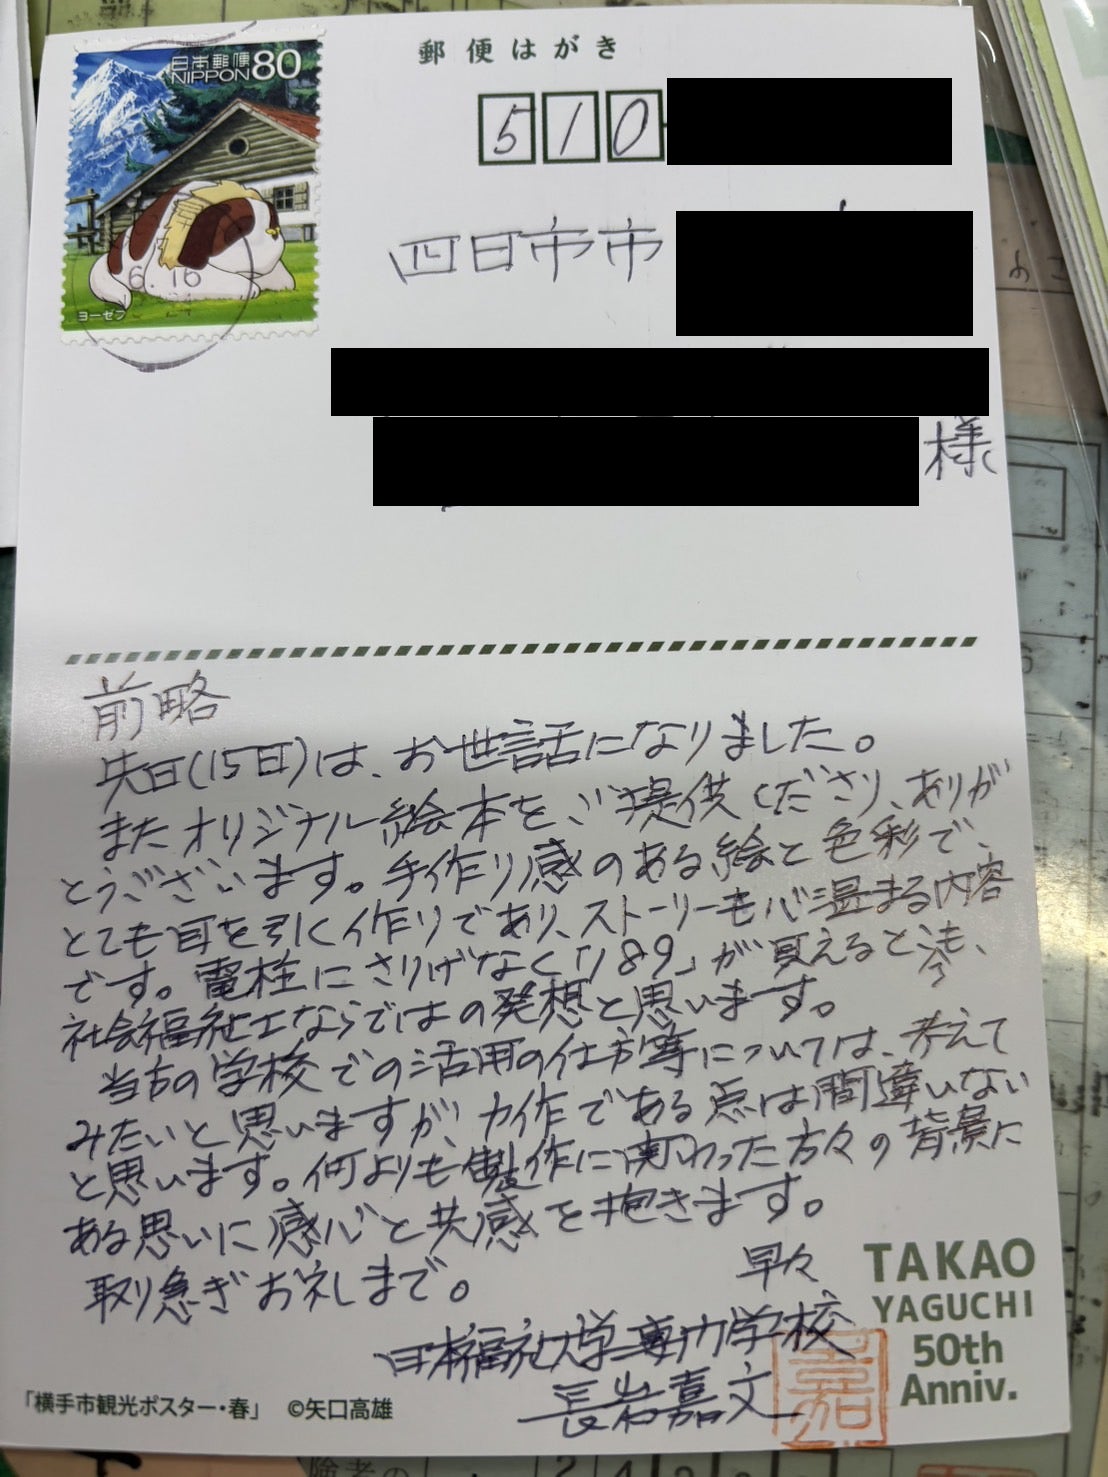 日本郵便
NIPPON 80
ヨーゼフ
6.16
郵便はがき
510
四日市市
様
前略
先日(15日)は、お世話になりました。
またオリジナル絵本をご提供くださり、ありが
とうございます。手作り感のある絵と色彩で、
とても目を引く作りであり、ストーリーも心温まる内容
です。電柱にさりげなく「189」が見えるところも、
社会福祉士ならではの発想と思います。
当方の学校での活用の仕方等については、考えて
みたいと思いますが、力作である点は間違いない
と思います。何よりも製作に関わった方々の背景に
ある思いに感心と共感を抱きます。
取り急ぎお礼まで。
早々
日本福祉大学専門学校
長岩嘉文
嘉
TAKAO
YAGUCHI
50th
Anniv.
「横手市観光ポスター・春」 ©矢口高雄
険者の